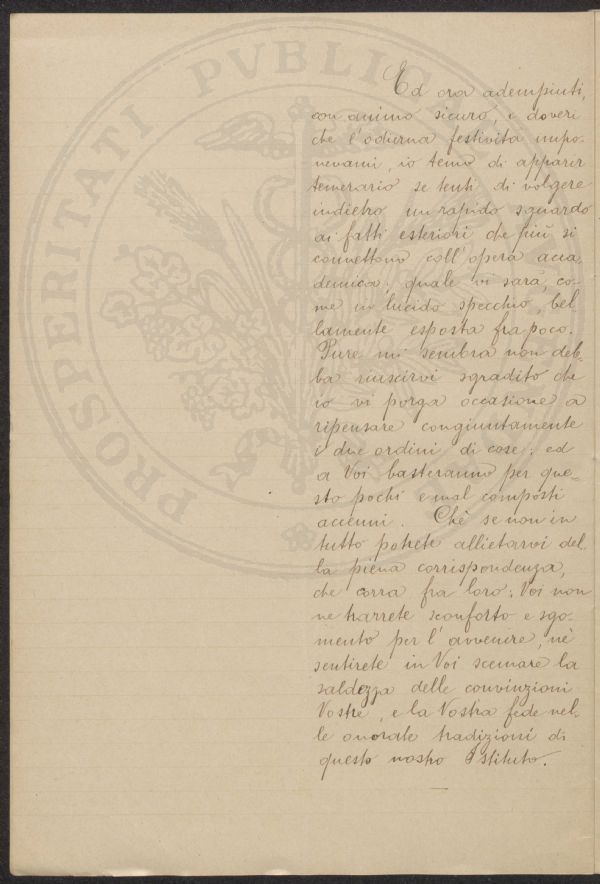 PROSPERITATI PVBLICAE
Ed ora adempiuti,
con animo sicuro, i doveri
che l'odierna festività impo-
nevami, io temo di apparir
temerario se tenti di volgere
indietro un rapido sguardo
ai fatti esteriori che più si
connettono coll'opera acca
demica; quale vi sarà, co-
me in lucido specchio, bel
lamente esposta fra poco.
Pure mi sembra non deb-
ba riuscirvi sgradito che
io vi porga occasione a
ripensare congiuntamente
i due ordini di cose; ed
a Voi basteranno per que-
sto pochi e mal composti
accenni. Chè se non in
tutto potrete allietarvi del
la piena corrispondenza,
che corra fra loro; Voi non
ne trarrete sconforto e sgo-
mento per l'avvenire, nè
sentirete in Voi scemare la
saldezza delle convinzioni
Vostre, e la Vostra fede nel-
le onorate tradizioni di
questo nostro Istituto.